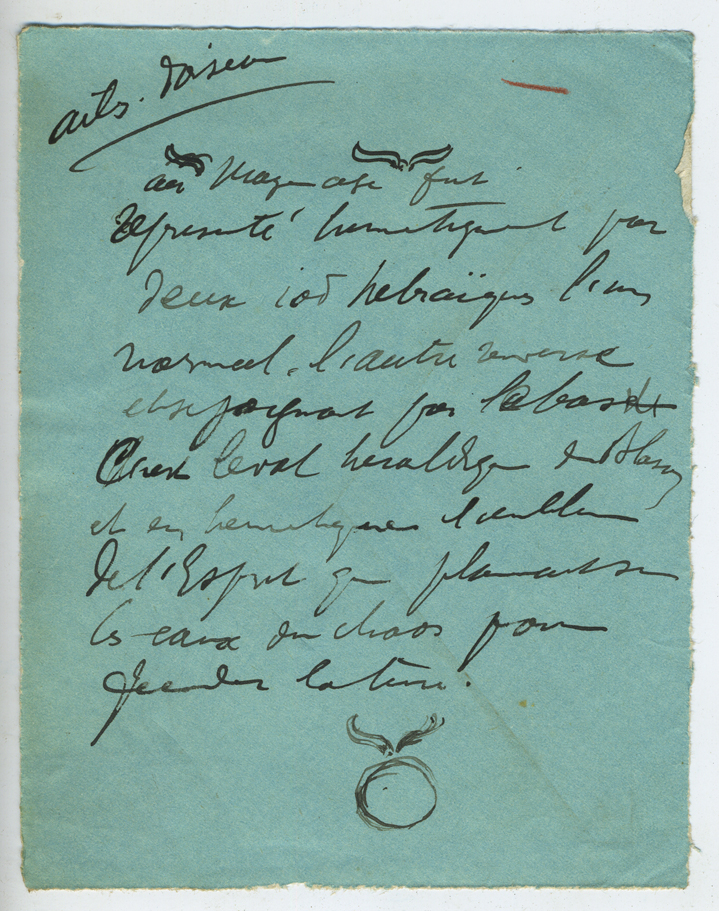 ailes d'oiseau
au Moyen age fut
représenté hermetiquement par
deux iod hebraïques l'un
normal, l'autre renversé
et se joignant par la base
C'est le vol heraldique du Blason
et en hermetique l'emblem
de l'Esprit qui plane sur
les eaux du chaos pour
feconder la terre.